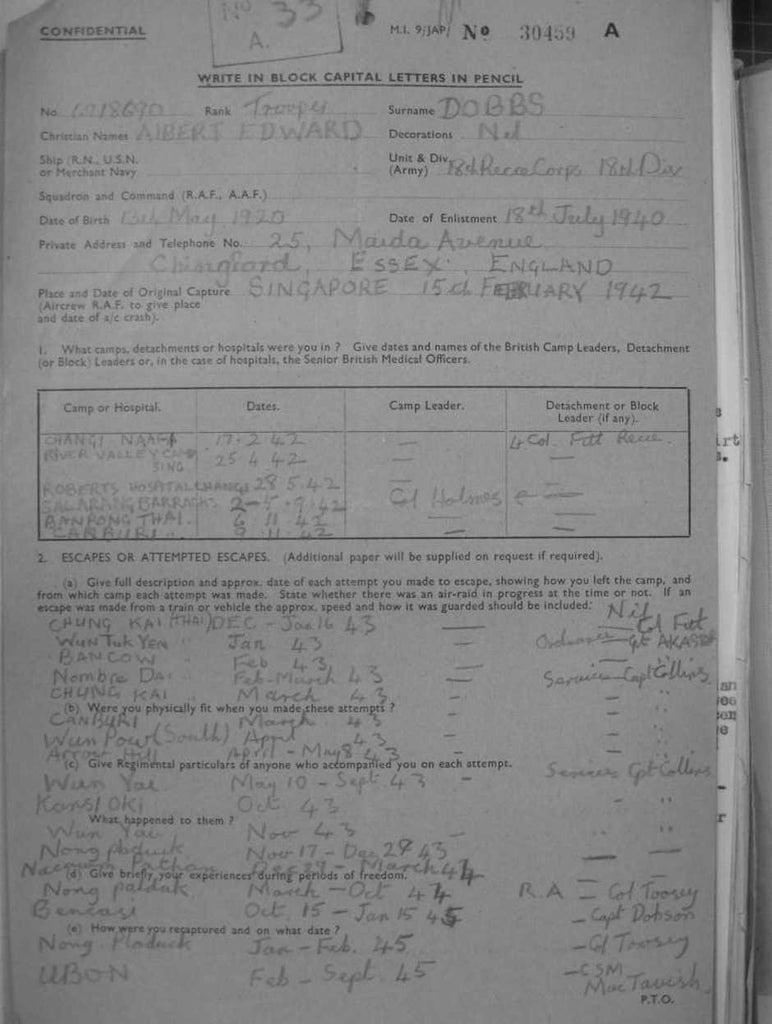 No 33
A.
CONFIDENTIAL M.I. 9/JAP/ No 30459 A
WRITE IN BLOCK CAPITAL LETTERS IN PENCIL
No. Rank Trooper Surname DOBBS
Christian Names ALBERT EDWARD Decorations Nil
Ship (R.N., U.S.N. or Merchant Navy Unit & Div. (Army) 18th Recce Corps 18th Div
Squadron and Command (R.A.F., A.A.F.)
Date of Birth 13th May 1920 Date of Enlistment 18th July 1940
Private Address and Telephone No. 25, Maida Avenue
Chingford, ESSEX, ENGLAND
Place and Date of Original Capture SINGAPORE 15th FEBRUARY 1942
(Aircrew R.A.F. to give place
and date of a/c crash).
1. What camps, detachments or hospitals were you in ? Give dates and names of the British Camp Leaders, Detachment
(or Block) Leaders or, in the case of hospitals, the Senior British Medical Officers.
Camp or Hospital. Dates. Camp Leader. Detachment or Block Leader (if any).
CHANGI NAAFI 17.2.42 — Col. Fitt Recce.
RIVER VALLEY CAMP SING 25 4 42 — —
ROBERTS HOSPITAL CHANGI 28.5.42
SALARANG BARRACKS 2-5.9.42 Col Holmes —
BANPONG THAI. 6 11 42 — —
CANBURI. 9.11.42 — —
2. ESCAPES OR ATTEMPTED ESCAPES. (Additional paper will be supplied on request if required).
(a) Give full description and approx. date of each attempt you made to escape, showing how you left the camp, and
from which camp each attempt was made. State whether there was an air-raid in progress at the time or not. If an
escape was made from a train or vehicle the approx. speed and how it was guarded should be included. Nil
CHUNG KAI (THAI) DEC - Jan 16 43 — Col Fitt
WUN TUK YEN " Jan 43 —
BANCOW " Feb 43 —
Nombre Dai Feb-March 43 — Services Capt Collins
CHUNG KAI March 43 - "
(b) Were you physically fit when you made these attempts ?
CANBURI March 43 - "
Wun Pow (South) April 43 - "
Arrow Hill April - May 8 43 - "
(c) Give Regimental particulars of anyone who accompanied you on each attempt.
Wun Yai May 10 - Sept 43 - Services Cpt Collins
Kansi OKi Oct 43 "
What happened to them ?
Wun Yai Nov 43 - "
Nong pladuk Nov 17 - Dec 29 43 — —
Pathan Dec 29 - March 44
(d) Give briefly your experiences during periods of freedom.
Nong paldak March - Oct 44 R.A — Col Toosey
Oct 15 - Jan 15 45 - Capt Dobson
(e) How were you recaptured and on what date ?
Nong. Pladuck Jan - Feb. 45 - Col Toosey
UBON Feb - Sept. 45 - CSM Mac Tavish
P.T.O.